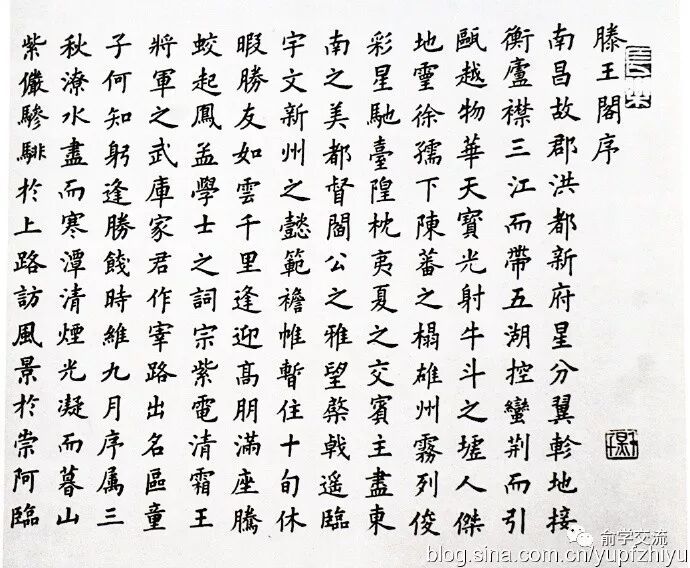 滕王閣序
南昌故郡洪都新府星分翼軫地接
衡廬襟三江而帶五湖控蠻荊而引
甌越物華天寶光射牛斗之墟人傑
地靈徐孺下陳蕃之榻雄州霧列俊
彩星馳臺隍枕夷夏之交賓主盡東
南之美都督閻公之雅望棨戟遙臨
宇文新州之懿範襜帷暫住十旬休
暇勝友如雲千里逢迎高朋滿座騰
蛟起鳳孟學士之詞宗紫電清霜王
將軍之武庫家君作宰路出名區童
子何知躬逢勝餞時維九月序属三
秋潦水盡而寒潭清煙光凝而暮山
紫儼驂騑於上路訪風景於崇阿臨
俞学交流
blog.sina.com.cn/yupfzhiyu